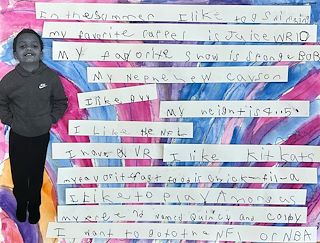 In the summer I like to go swimming
my favorite rapper is Juice WRLD
My favorite show is SpongeBOB
My nephew cayson
I like
my height is 4..5.
I Like the NFL
I have a VR I like kitkats
my favorit fast food is chick-fil-a
I Like to play Among us
my named Quincy and
I want to go to the NFL or NBA